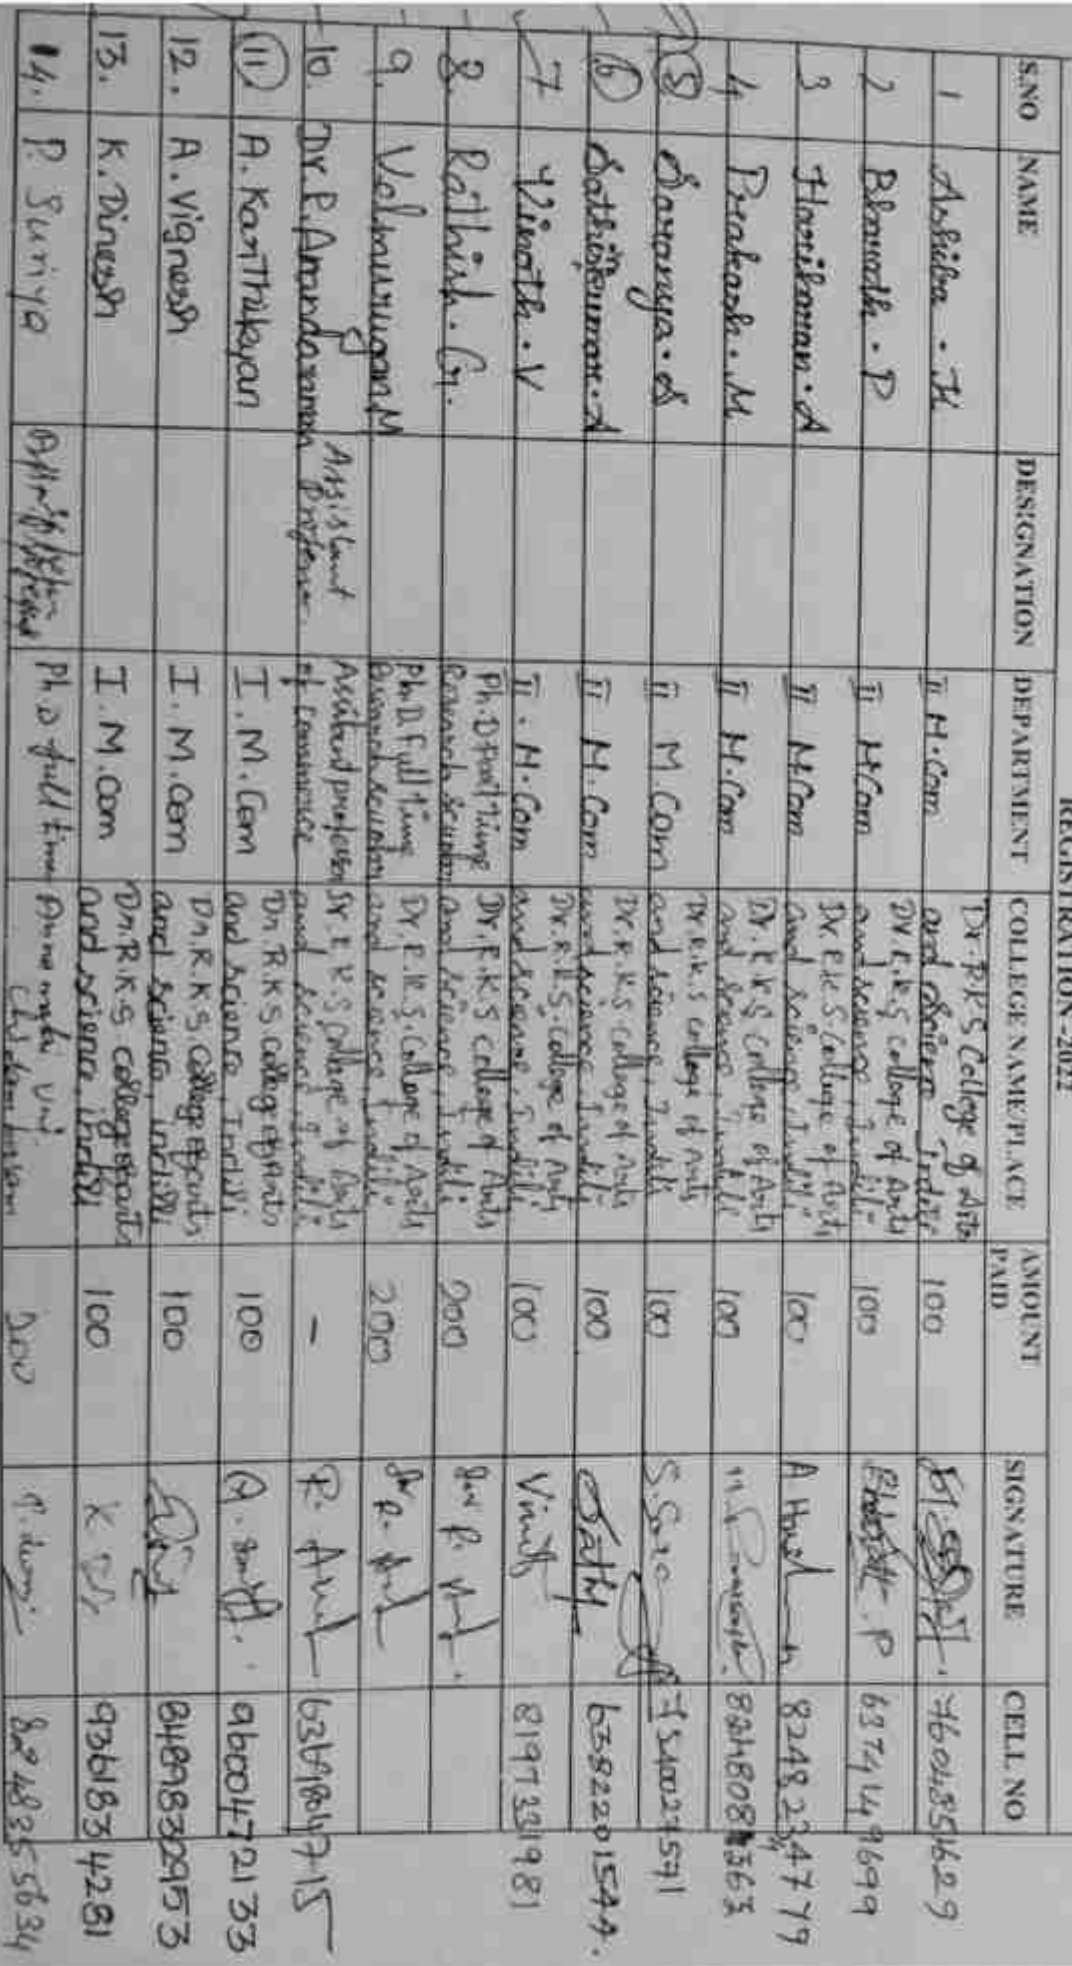 REGISTRATION-2022
S.NO NAME DESIGNATION DEPARTMENT COLLEGE NAME/PLACE AMOUNT PAID SIGNATURE CELL NO
1 Ashiba . H II M.Com Dr.R.K.S College of Arts and Science Indili 100 7604851629
2 Bharadh . P II M.Com Dr.R.K.S college of Arts and science, Indili 100 P 6374449699
3 Hariharan . A II M.Com Dr.R.K.S College of Arts and science, Indili 100 A Hari 8248234779
4 Prakash . M II M.Com Dr.R.K.S College of Arts and science, Indili 100
5 Saranya . S II M.Com Dr.R.K.S college of Arts and science, Indili 100 S. Sara 7540024571
6 Sathishkumar . A II M.Com Dr.R.K.S college of Arts and science, Indili 100 Sathy 6382201544.
7 Vinoth . V II . M.Com Dr.R.K.S. College of Arts and science, Indili 100 Vinoth 8197331981
8. Rathish . G. Ph.D Full time Research scholar Dr.R.K.S college of Arts and science, Indili 200
9. Velmurugan M Ph.D Full time Research scholar Dr.R.K.S. College of Arts and science, Indili 200
10. Dr.R.Anandaraman Assistant Professor. Assistant professor of commerce Dr.R.K.S College of Arts and science, Indili - 6369804715
11 A. Karthikeyan I . M. Com Dr.R.K.S. college of Arts and science, Indili 100 9600472133
12. A. Vignesh I . M. Com Dr.R.K.S. college of arts and science, indili 100 8489832953
13. K. Dinesh I . M. Com Dr.R.K.S college of arts and science, indili 100 9361834281
14. P. Suriya Ph.D full time Annamalai Uni. Chidambaram 200 8248355634